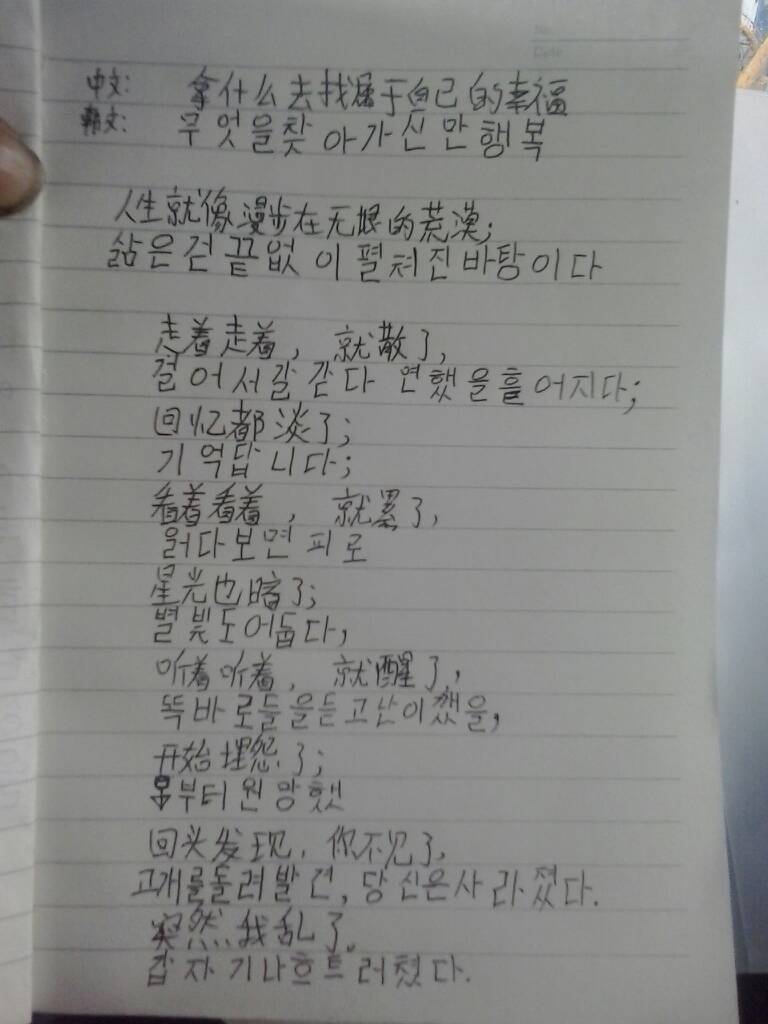 No.
Date
中文: 拿什么去找属于自己的幸福
韩文: 무엇을찾 아가신만행복
人生就像漫步在无垠的荒漠;
삶은걷끝없 이펼쳐진바탕이다
走着走着, 就散了,
걸어서갈같다 연했을흘어지다;
回忆都淡了;
기억답니다;
看着看着, 就累了,
읽다보면피로
星光也暗了;
별빛도어둡다,
听着听着, 就醒了,
똑바로들을듣고난이깼을,
开始埋怨了;
부터원망했
回头发现, 你不见了,
고개를돌려발견, 당신은사라졌다.
突然我乱了。
갑자기나흐트러쳤다.